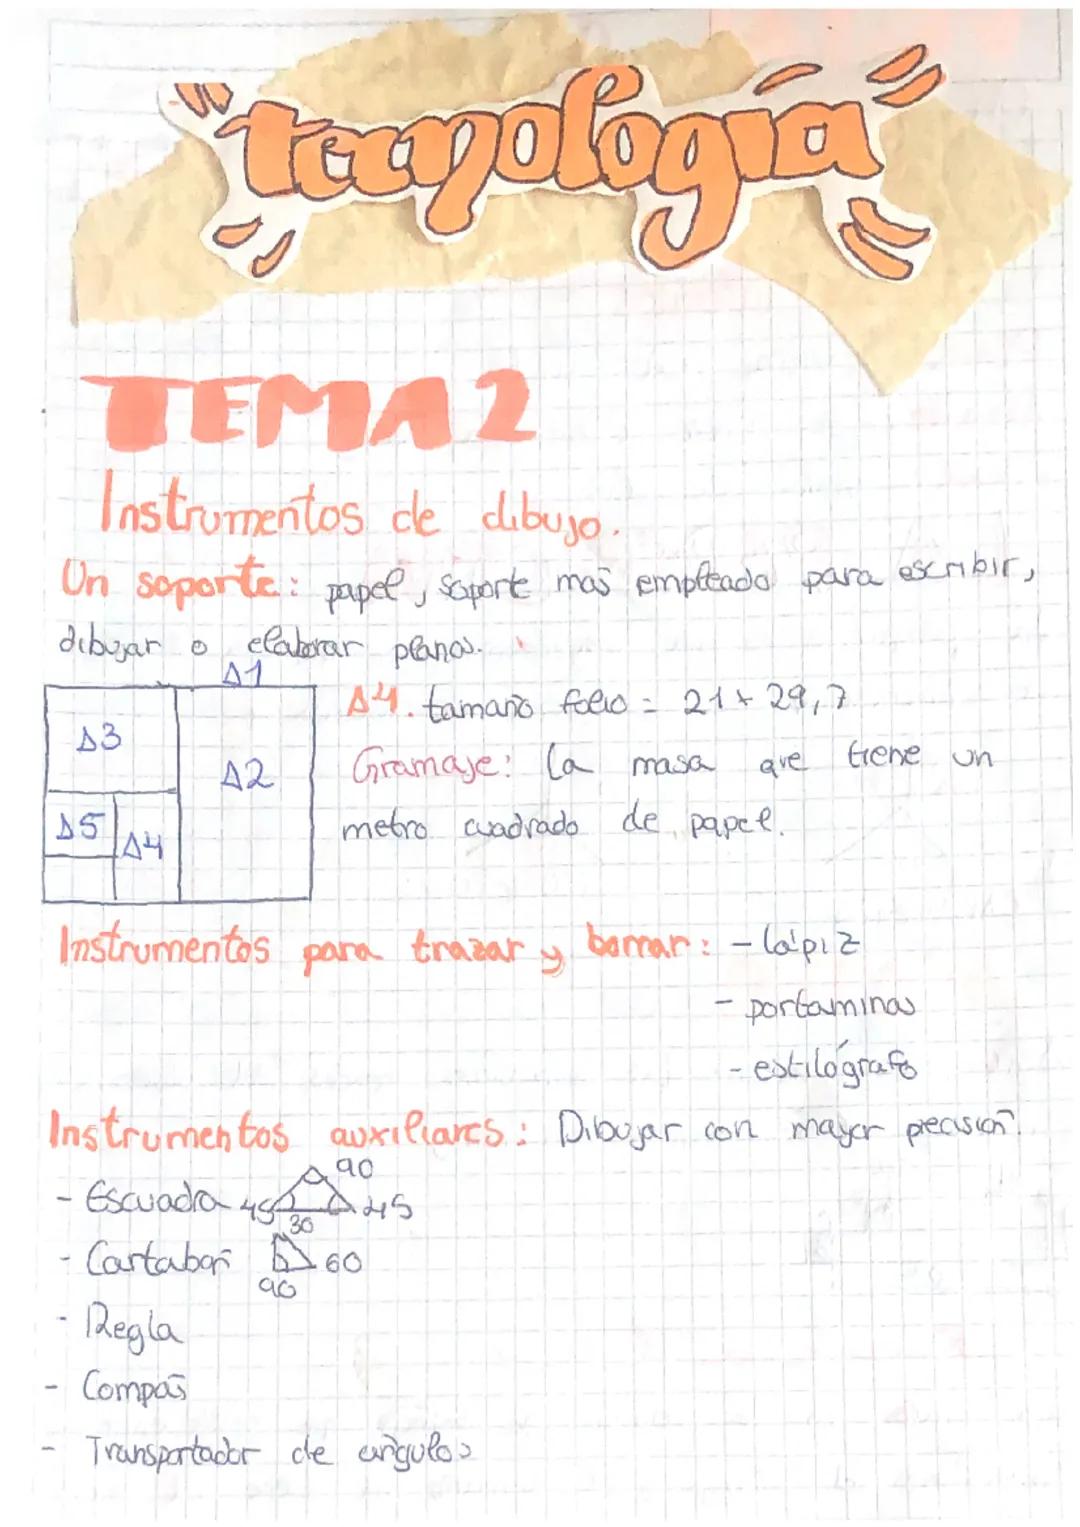 "tecnología"
TEMA 2
Instrumentos de dibujo.
Un soporte: papel, soporte más empleado para escribir,
dibujar o elaborar planos.
A1
A3
A2
A5
A4
A4. tamaño folio = 21 + 29,7
Gramaje: la masa que tiene un
metro cuadrado de papel.
Instrumentos para trazar y borrar: - lápiz
- portaminas
- estilógrafo
Instrumentos auxiliares: Dibujar con mayor precisión.
- Escuadra 45 90 45
- Cartabón 30 60 90
- Regla
- Compás
- Transportador de ángulos